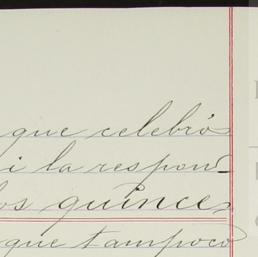 que celebró
i la respon-
os quince
que tampoco